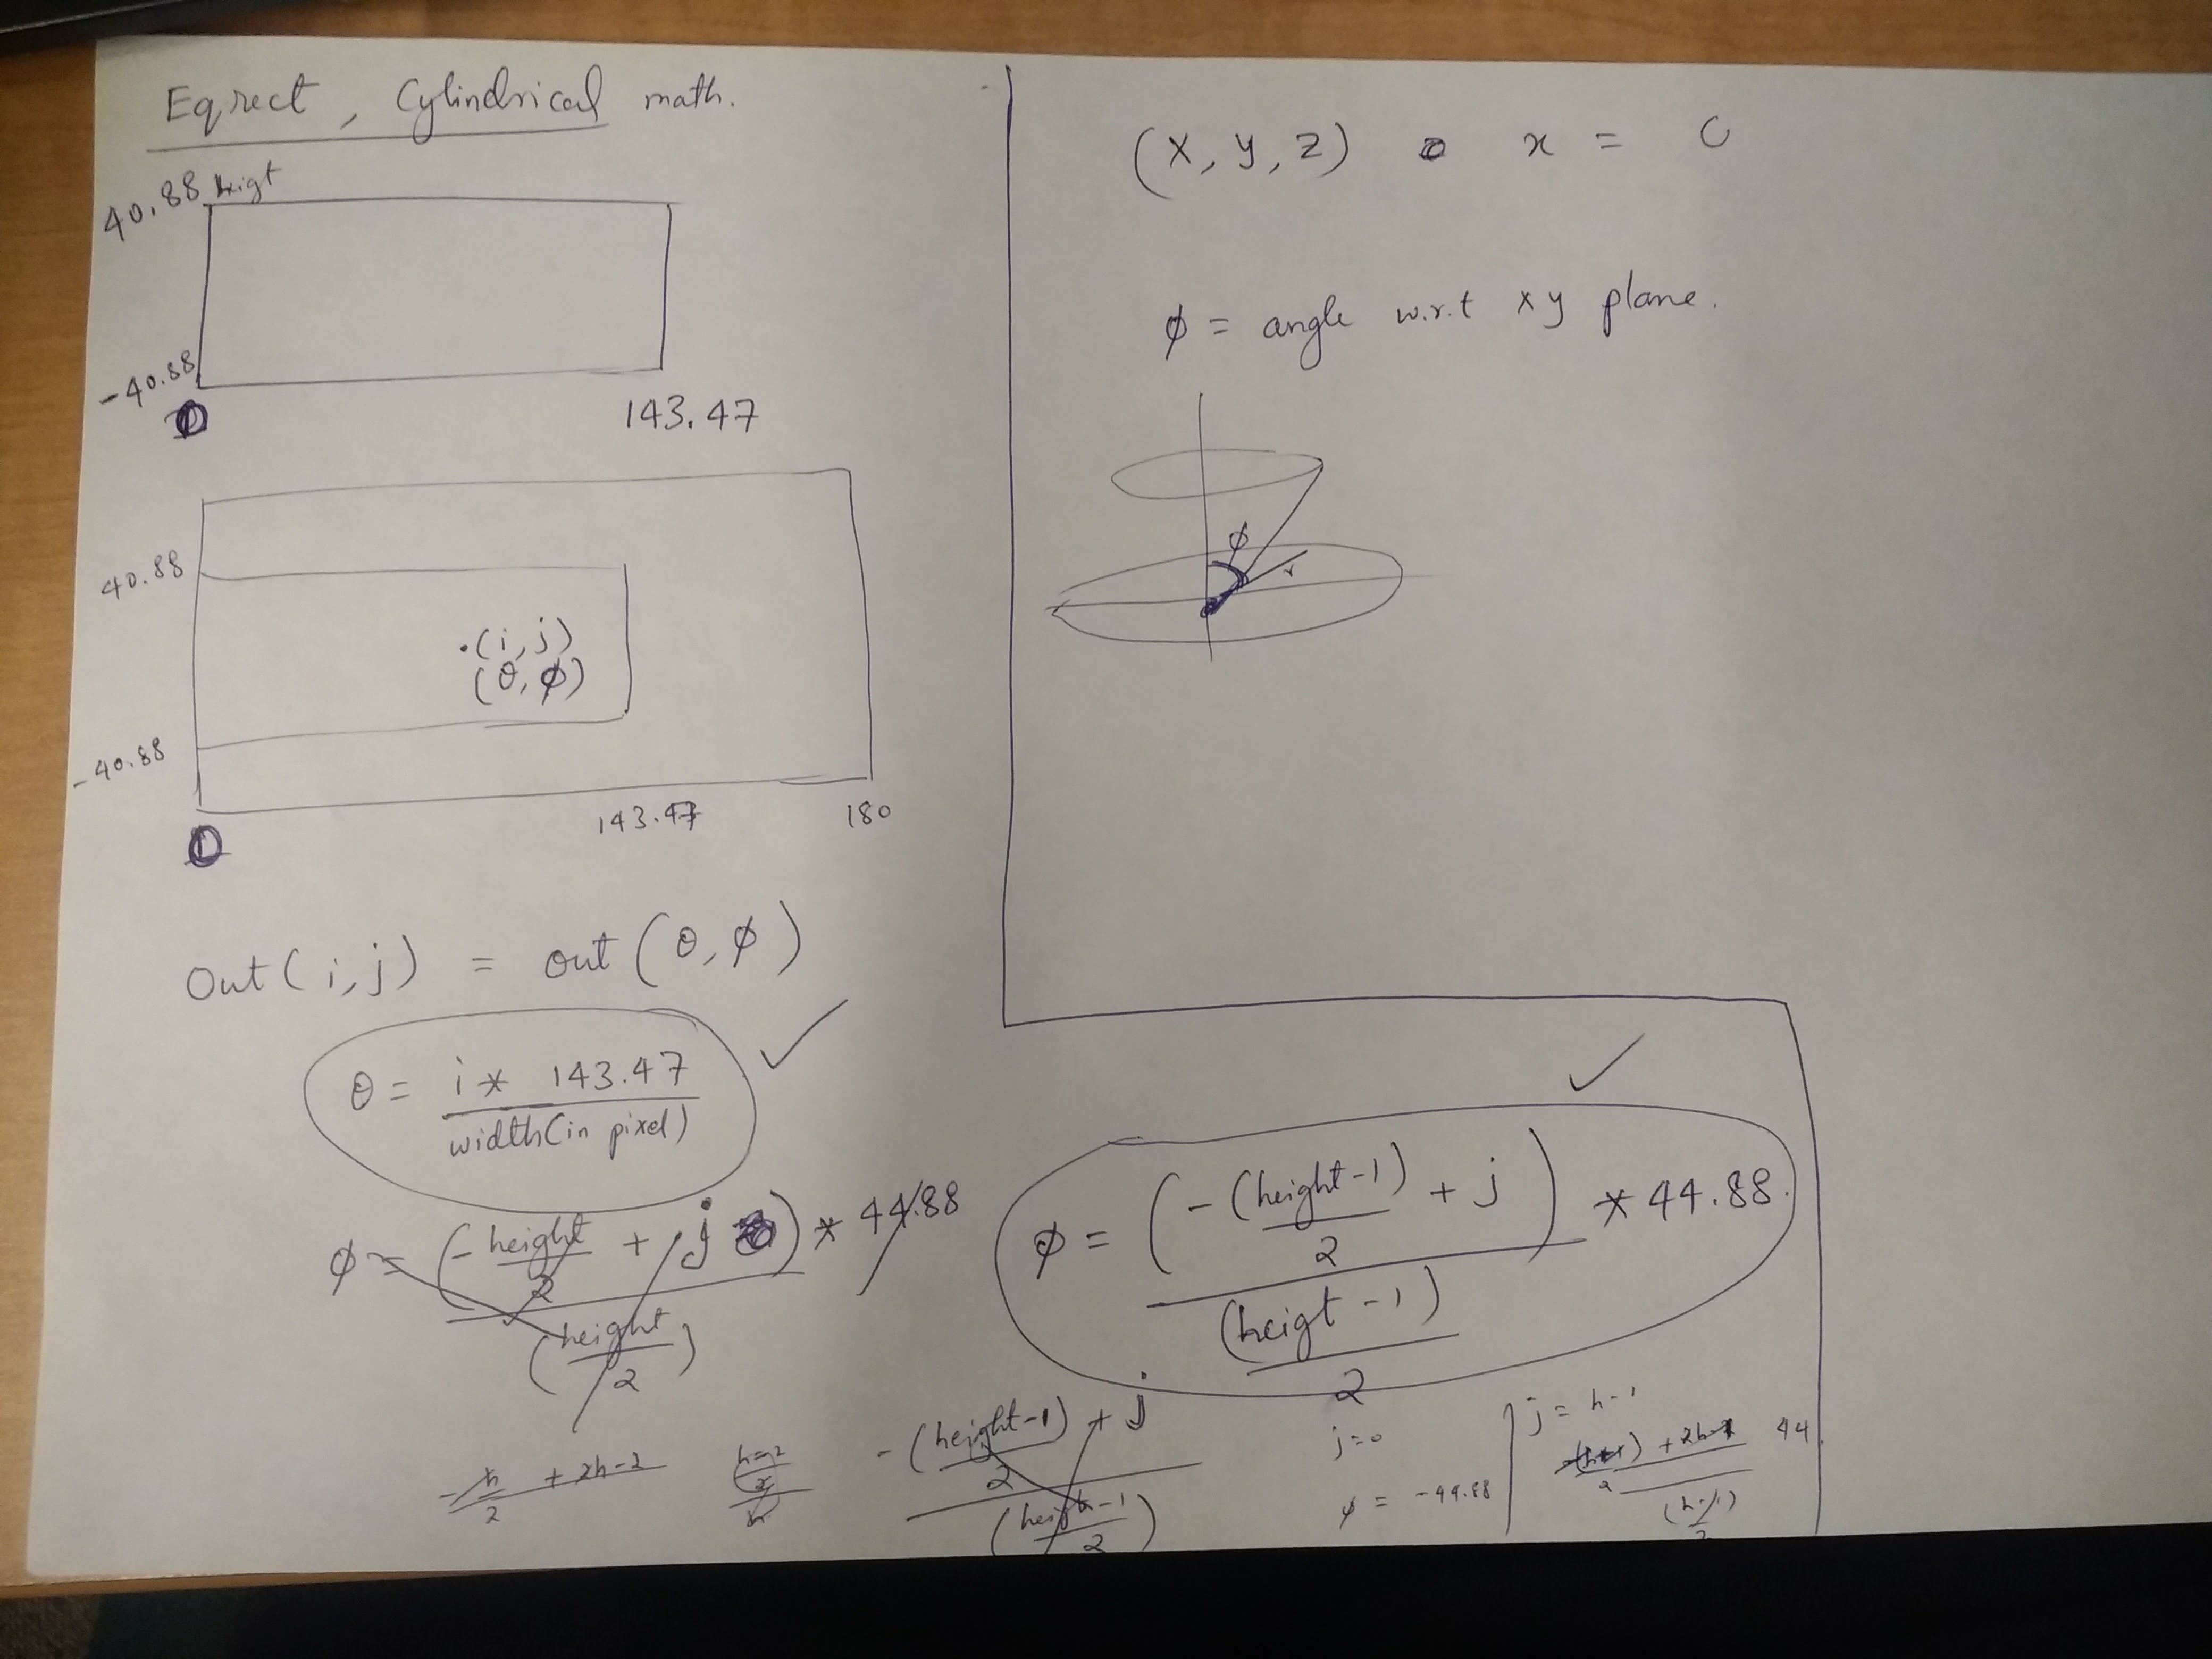 Eqrect, Cylindrical math.
40.88 heigt
-40.88
0
143.47
40.88
.(i, j)
(θ, ϕ)
-40.88
0
143.47
180
Out(i, j) = out(θ, ϕ)
θ = i * 143.47
width(in pixel)
ϕ = (-height/2 + j) * 44.88
(height/2)
-h/2 + 2h-2
-(height-1)/2 + j
(height-1/2)
(x, y, z) x =
ϕ = angle w.r.t xy plane.
ϕ
r
ϕ = (-(height-1)/2 + j) * 44.88
(heigt-1)/2
j=0
ϕ = -44.88
j = h-1
+2h- 44
(h-1)/2